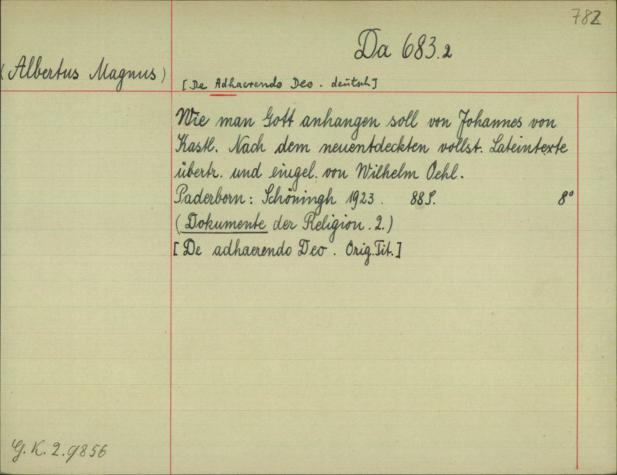 782
Da 683.2
(Albertus Magnus)
[De Adhaerendo Deo. deutsch]
Wie man Gott anhangen soll von Johannes von
Kastl. Nach dem neuentdeckten vollst. Lateintexte
übertr. und eingel. von Wilhelm Oehl.
Paderborn: Schöningh 1923. 88 S. 8°
(Dokumente der Religion. 2.)
[De adhaerendo Deo. Orig. Tit.]
G. K. 2. 9856